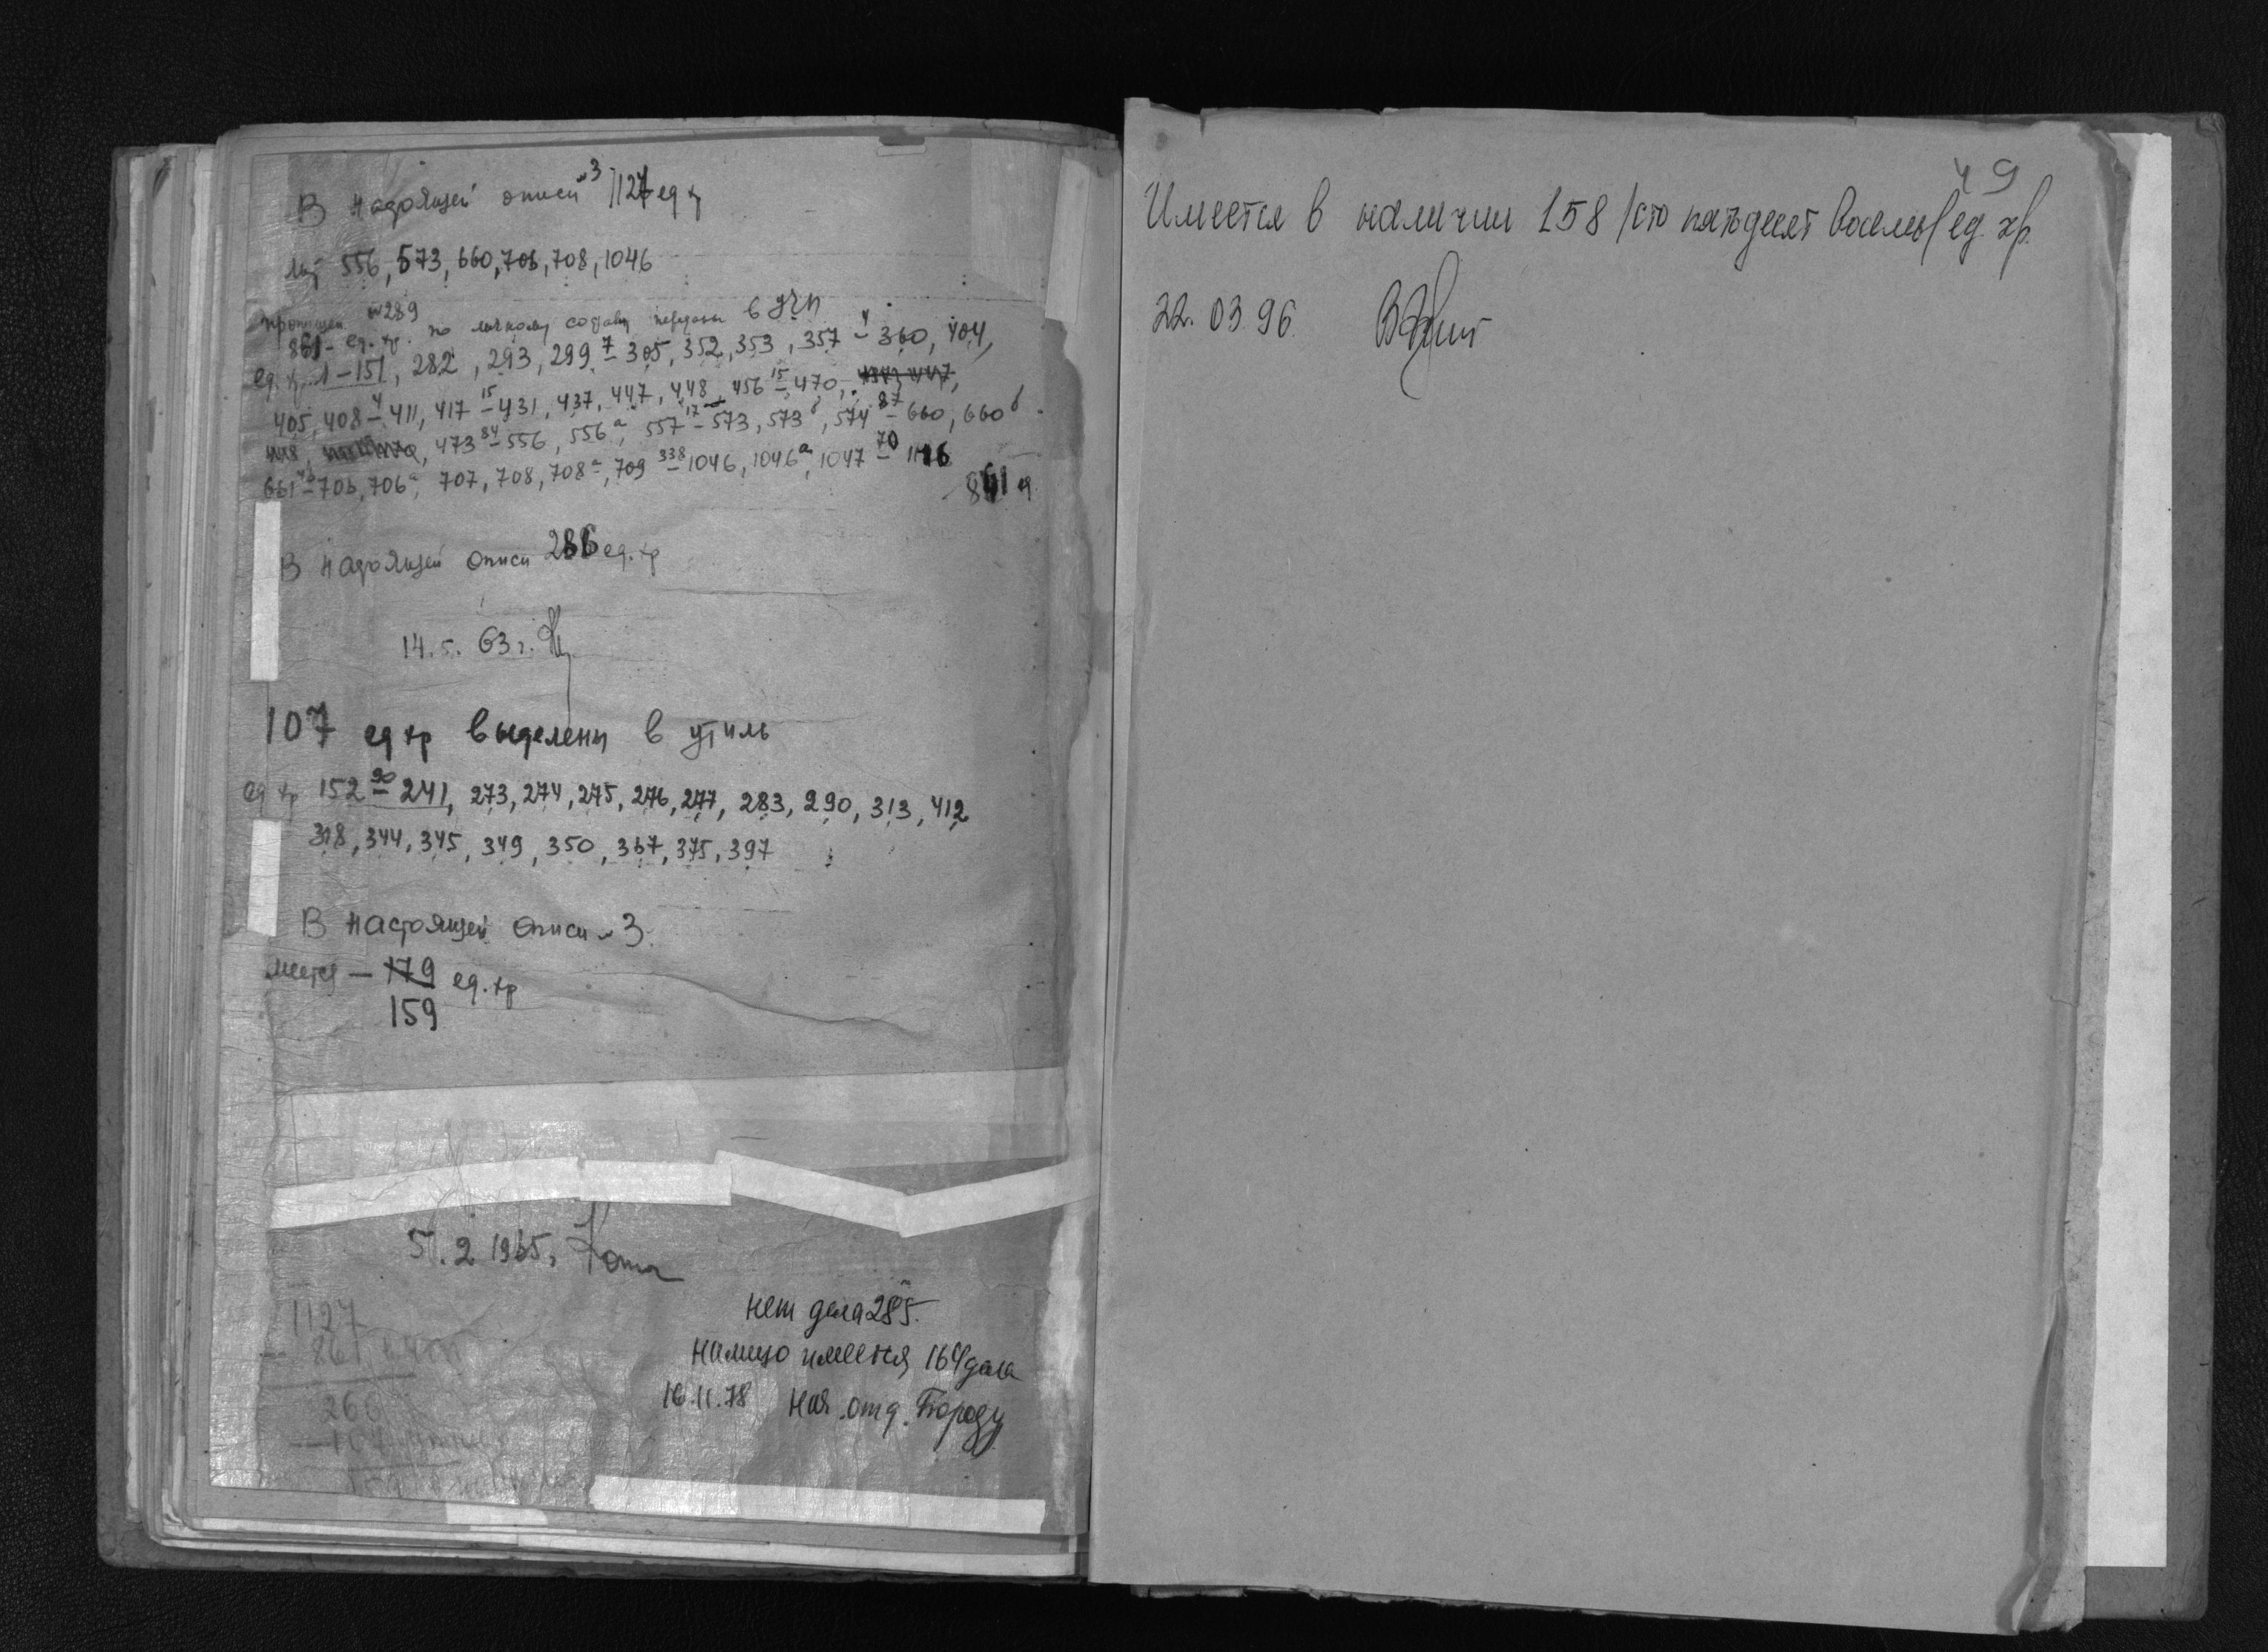 В настоящей описи №3 1127 ед хр
лит 556, 573, 660, 706, 708, 1046
пропущен №289
861 - ед. хр. по личному составу переданы в
ед. х. 1-151, 282, 293, 299 7- 305, 352, 353, 357 4- 360, 404,
405, 408 4- 411, 417 15- 431, 437, 447, 448, 456 15- 470,
473 84- 556, 556а, 557 17- 573, 573б, 574 87- 660, 660б
661 46- 706, 706а, 707, 708, 708а, 709 338- 1046, 1046а, 1047 70- 1116
861 ед
В настоящей описи 266 ед. хр
14.5. 63 г.
107 ед хр выделены в утиль
ед хр 152 90- 241, 273, 274, 275, 276, 277, 283, 290, 313, 412
318, 344, 345, 349, 350, 367, 375, 397
В настоящей описи №3
меется - 179 ед. хр
159
5.2 1965г.
1127
861
266
нет дела 285.
Налицо имеется 164 дела
16.11.78 Нач. отд.
49
Имеется в наличии 158 /сто пятьдесят восемь/ ед. хр.
22.03.96.